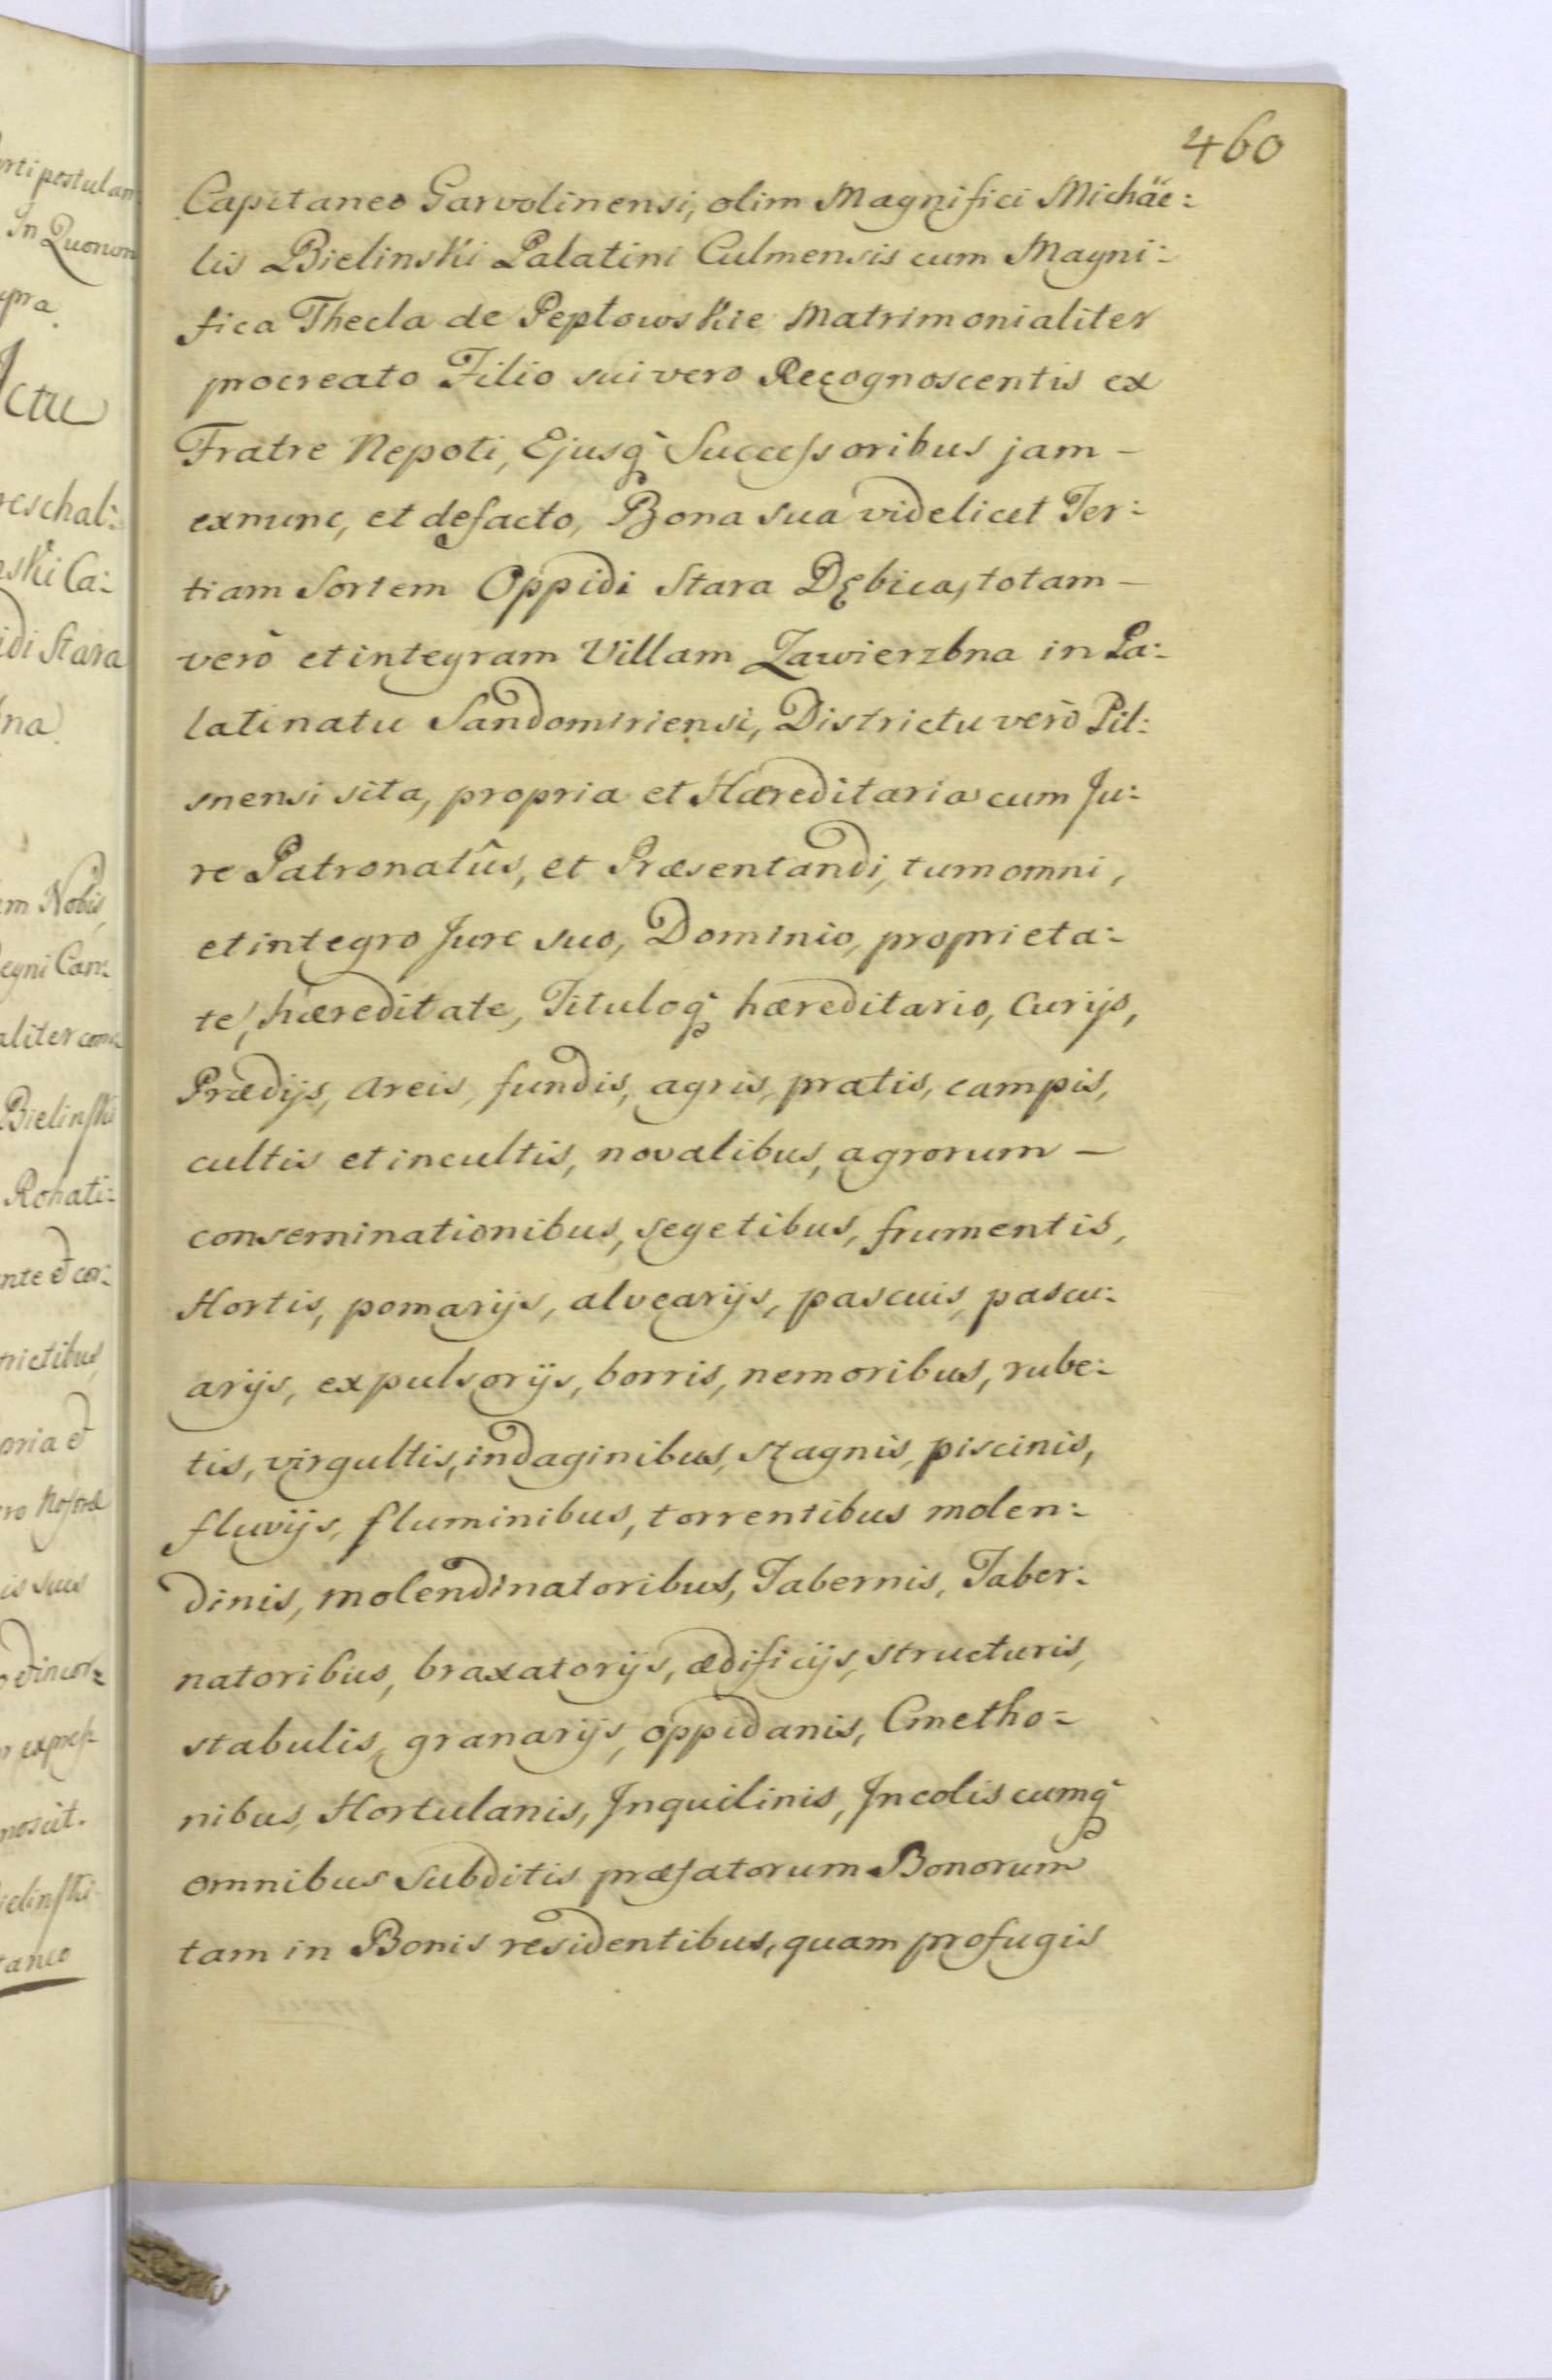 460
Capitaneo Garvolinensi, olim Magnifici Michäe:
lis Bielinski Palatini Culmensis cum Magni:
fica Thecla de Peptowskie Matrimonialiter
procreato Filio sui vero Recognoscentis ex
Fratre Nepoti, Ejusq̀ Successoribus jam –
exnunc, et defacto, Bona sua videlicet Ter:
tiam Sortem Oppidi Stara Dębica, totam –
verò et integram Villam Zawierzbna in Pa:
latinatu Sandomiriensi, Districtu verò Pil:
snensi sita, propria et Hæreditaria cum Ju:
re Patronatûs, et Præsentandi, tum omni,
et integro Jure suo, Dominio, proprieta:
te, hæreditate, Tituloq̀ hæreditario, Curijs,
Prædijs, Areis, fundis, agris, pratis, campis,
cultis et incultis, novalibus, agrorum –
conseminationibus, segetibus, frumentis,
Hortis, pomarijs, alvearijs, pascuis, pascu:
arijs, expulsorijs, borris, nemoribus, rube:
tis, virgultis, indaginibus, stagnis, piscinis,
fluvijs, fluminibus, torrentibus molen:
dinis, molendinatoribus, Tabernis, Taber:
natoribus, braxatorijs, ædificijs, structuris,
stabulis, granarijs, oppidanis, Cmetho=
nibus, Hortulanis, Inquilinis, Incolis cumq̀
omnibus Subditis præfatorum Bonorum
tam in Bonis residentibus, quam profugis